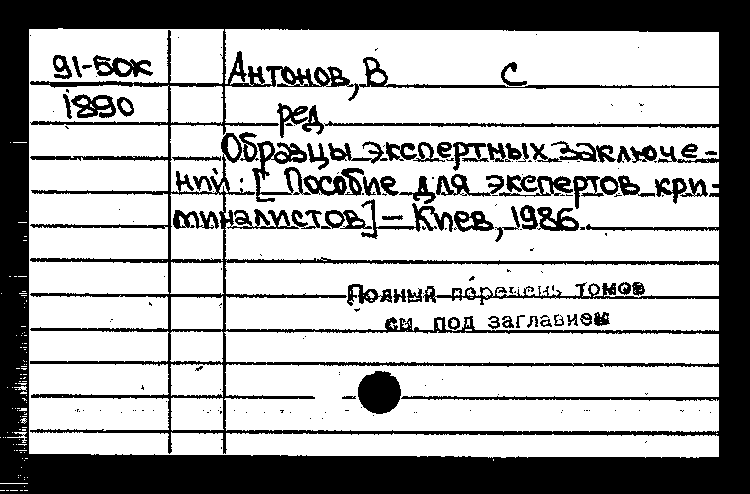 91-50К Антонов, В С
1890 ред.
Образцы экспертных заключе-
ний: [Пособие для экспертов кри-
миналистов] – Киев, 1986.
Полный перечень томов
см. под заглавием